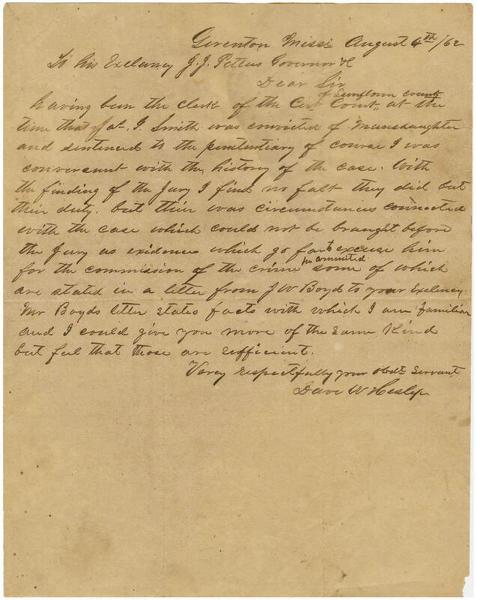 Greenton Missi August 4th/62
To his Exclancy J. J. Pettus Governor &c
Dear Sir
of Sunflower county
having been the clerk of the Cir Court, at the
time that J. Smith was convicted of Manslaughter
and sentenced to the penetentiary of course I was
conversant with the history of the case. With
the finding of the Jury I find no falt they did but
their duty. but their was circumstances connected
with the case which could not be braught before
the Jury as evidence which go far to excuse him
for the commission of the crime he committed some of which
are stated in a letter from J W Boyd to your Exclency
Mr Boyds letter states facts with which I am familiar
and I could give you more of the same Kind
but feel that those are sufficient.
Varey respectfully your obdt servant
Dave W Heslep